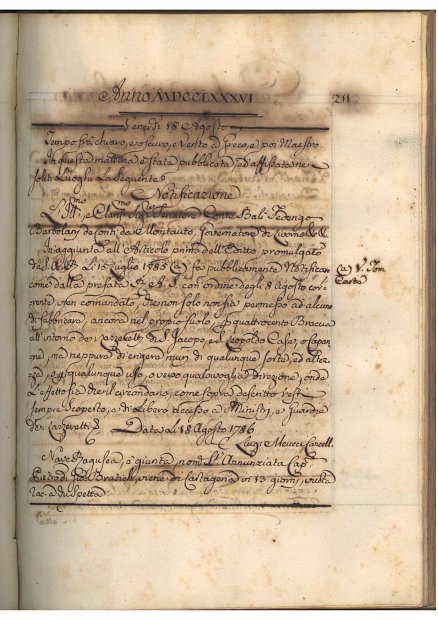 Anno MDCCLXXXVI
211
Venerdì 18 Agosto
Tempo frà chiaro, e oscuro, e Vento a Greco, e poi Maestro
In questa mattina è stata pubblicata, ed affissata ne
soliti Luoghi La Seguente
Notificazione
L'Ill.mo e Clariss.mo Sig.r Senatore Conte Balì Federigo
Barbolani de Conti da Montauto, Governatore di Livorno &.&.
In aggiunta all'Articolo primo dell'Editto promulgato
da S.A.R. Li 15 Luglio 1785 fa pubblicamente Notificare
come dalla prefata R.A.S. con ordine degli 8 Agosto cor-
rente, è stato comandato, che non solo non sia permesso ad alcuno
di fabbricare, ancora nel proprio suolo, a quattrocento Braccia
all'intorno dei Lazzeretti di S. Jacopo, e S. Leopoldo Case, o Capan-
ne, ma neppure di erigere muri di qualunque sorta, ed altez-
za, e per qualunque uso, o verso qualsivoglia direzione, onde
L'effetto sia che il circondario, come sopra descritto resti
sempre scoperto, e di Libero accesso a Ministri, e Guardie
dei Lazzeretti
Data Li 18 Agosto 1786
Luigi Meucci Cancell.
Nave Ragusea, è giunta, nom.ta L'Annunziata Cap.
Pietro di Gio. Bratich, viene di Cartagena in 13 giorni,